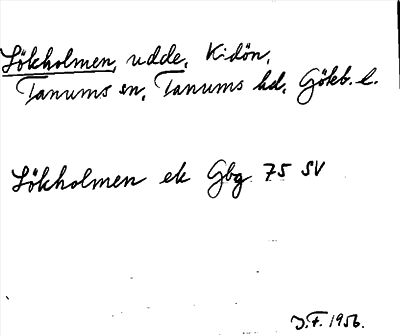 Lökholmen, udde, K-dön,
Tanums sn, Tanums hd, Götb. l.
Lökholmen ek Gbg 75 SV
J.F. 1956.